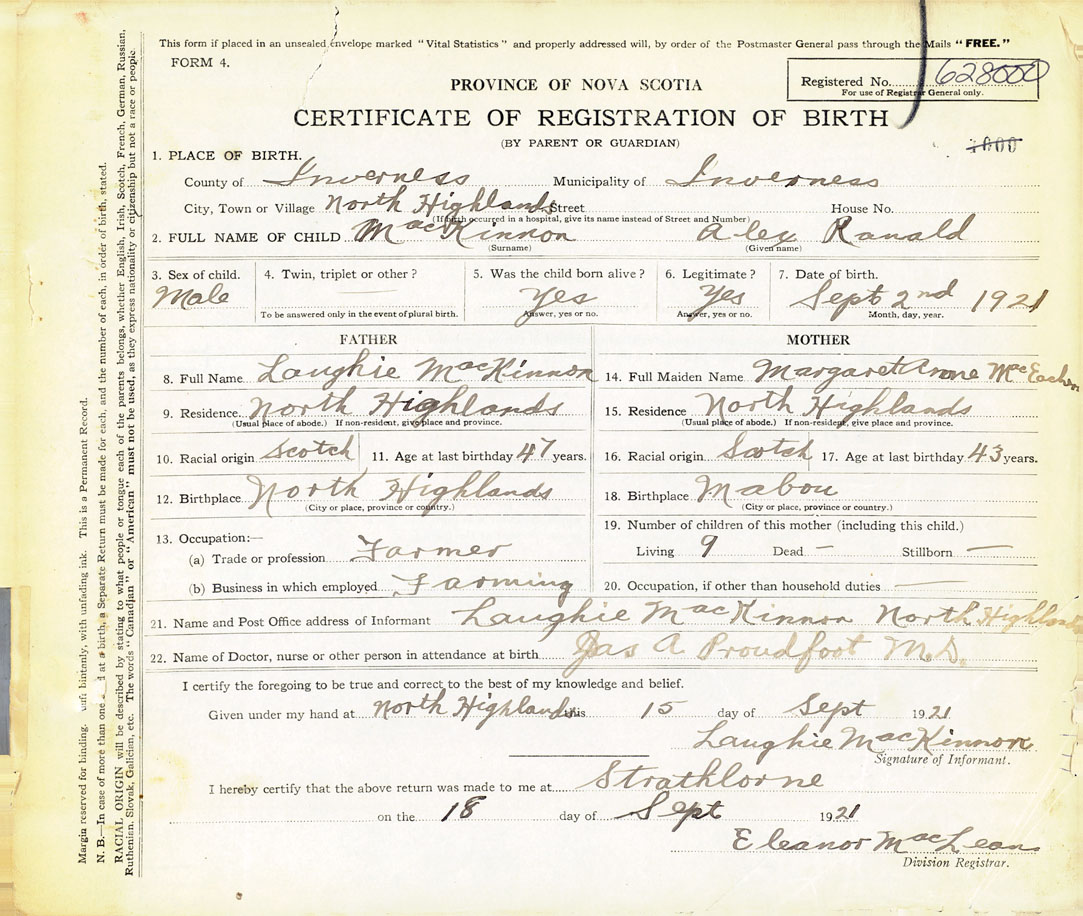 This form if placed in an unsealed envelope marked "Vital Statistics" and properly addressed will, by order of the Postmaster General pass through the Mails "FREE."
FORM 4.
Registered No. 628000
For use of Registrar General only.
PROVINCE OF NOVA SCOTIA
CERTIFICATE OF REGISTRATION OF BIRTH
(BY PARENT OR GUARDIAN)
1. PLACE OF BIRTH.
County of Inverness Municipality of Inverness
City, Town or Village North Highlands Street House No.
(If birth occurred in a hospital, give its name instead of Street and Number)
2. FULL NAME OF CHILD MacKinnon Alex Ranald
(Surname) (Given name)
3. Sex of child. 4. Twin, triplet or other? 5. Was the child born alive? 6. Legitimate? 7. Date of birth.
Male Yes Yes Sept 2nd 1921
To be answered only in the event of plural birth. Answer, yes or no. Answer, yes or no. Month, day, year.
FATHER MOTHER
8. Full Name Laughie MacKinnon 14. Full Maiden Name Margaret McEachen
9. Residence. North Highlands 15. Residence North Highlands
(Usual place of abode.) If non-resident, give place and province. (Usual place of abode.) If non-resident, give place and province.
10. Racial origin Scotch 11. Age at last birthday 47 years. 16. Racial origin Scotch 17. Age at last birthday 43 years.
12. Birthplace North Highlands 18. Birthplace Mabou
(City or place, province or country.) (City or place, province or country.)
13. Occupation:— 19. Number of children of this mother (including this child.)
(a) Trade or profession Farmer Living 9 Dead — Stillborn —
(b) Business in which employed Farming 20. Occupation, if other than household duties
21. Name and Post Office address of Informant Laughie MacKinnon North Highlands
22. Name of Doctor, nurse or other person in attendance at birth Jas A Proudfoot M.D.
I certify the foregoing to be true and correct to the best of my knowledge and belief.
Given under my hand at North Highlands this 15 day of Sept 1921
Laughie MacKinnon
Signature of Informant.
I hereby certify that the above return was made to me at Strathlorne
on the 18 day of Sept 1921
Eleanor MacLean
Division Registrar.
Margin reserved for binding. with unfading ink. This is a Permanent Record.
N. B.—In case of more than one at a birth, a Separate Return must be made for each, and the number of each, in order of birth, stated.
RACIAL ORIGIN will be described by stating to what people or tongue each of the parents belongs, whether English, Irish, Scotch, French, German, Russian,
Ruthenian, Slovak, Galician, etc. The words "Canadian" or "American" must not be used, as they express nationality or citizenship but not a race or people.